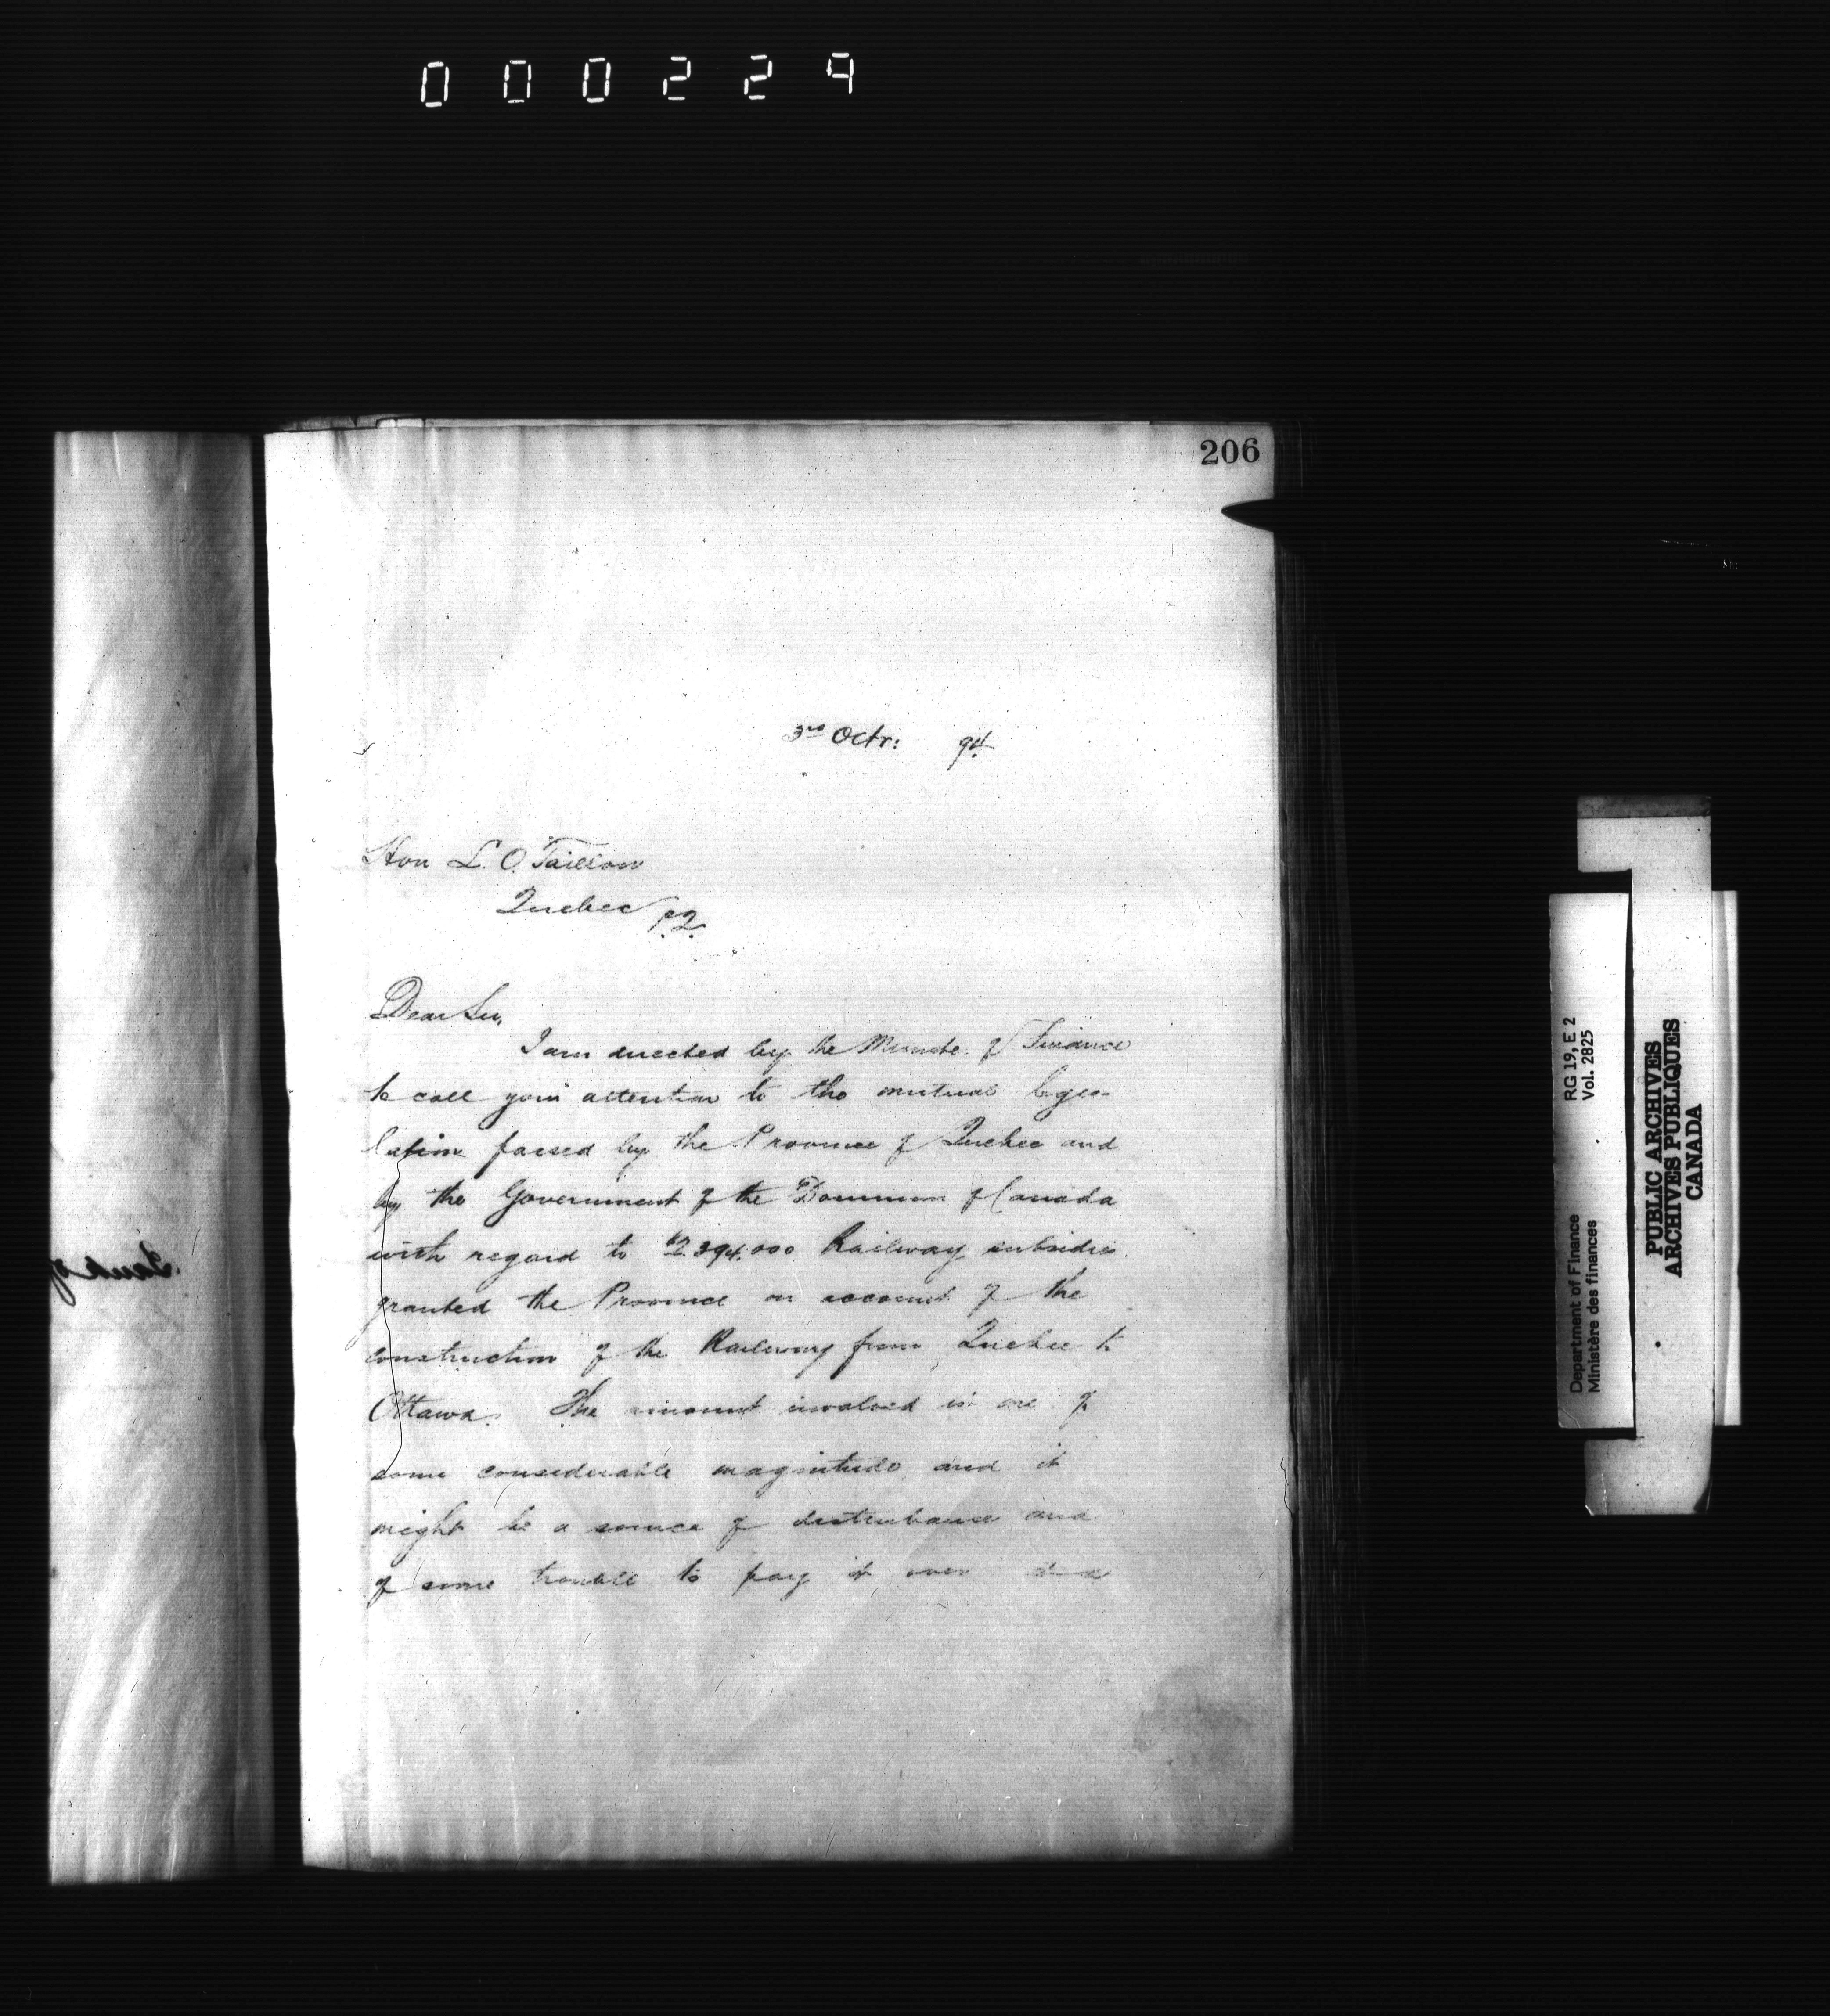 000229
206
3rd Octr: 94
Hon L. O. Taillon
Quebec P.Q.
Dear Sir,
I am directed by the Minister of Finance
to call your attention to the mutual legis-
lation passed by the Province of Quebec and
by the Government of the Dominion of Canada
with regard to $2.394.000 Railway subsidies
granted the Province on account of the
construction of the Railway from Quebec to
Ottawa. The amount involved is one of
some considerable magnitude and it
might be a source of disturbance and
of some trouble to pay it over
RG 19, E 2
Vol. 2825
Department of Finance
Ministère des finances
PUBLIC ARCHIVES
ARCHIVES PUBLIQUES
CANADA